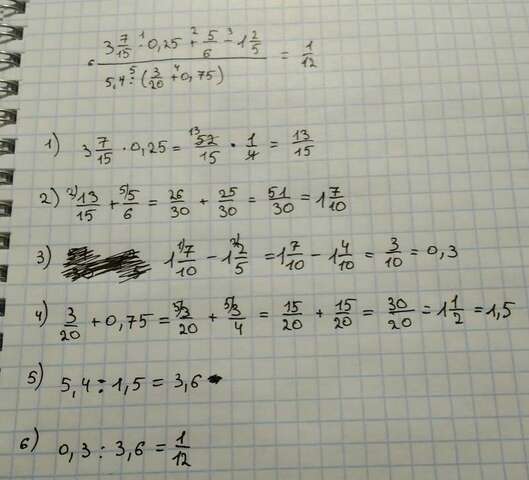 3 7/15 · 0,25 + 5/6 - 1 2/5
1 2 3
5,4 : (3/20 + 0,75) = 1/12
6 5 4
1) 3 7/15 · 0,25 = 52/15 · 1/4 = 13/15
13
2) 13/15 + 5/6 = 26/30 + 25/30 = 51/30 = 1 7/10
2) 5)
3) 1 7/10 - 1 2/5 = 1 7/10 - 1 4/10 = 3/10 = 0,3
1) 2)
4) 3/20 + 0,75 = 3/20 + 3/4 = 15/20 + 15/20 = 30/20 = 1 1/2 = 1,5
5) 5)
5) 5,4 : 1,5 = 3,6
6) 0,3 : 3,6 = 1/12